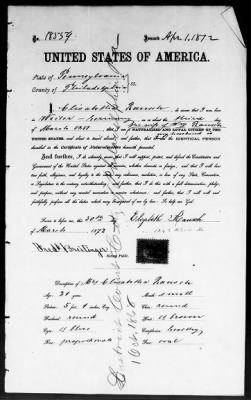 No. 18559
Issued Apr. 1, 1872
UNITED STATES OF AMERICA.
State of Pennsylvania
County of Philadelphia
I Elisabetha Rausch
do swear that I was born
March
that I am a NATURALIZED AND LOYAL CITIZEN OF THE
UNITED STATES,
IDENTICAL PERSON
described in the Certificate of Naturalization herewith presented.
And further, I do solemnly swear that I will support, protect, and defend the Constitution and
Government of the United States against all enemies, whether domestic or foreign, and that I will bear
true faith, allegiance, and loyalty to the same, any ordinance, resolution, or law of any State, Convention,
or Legislature to the contrary notwithstanding; and further, that I do this with a full determination, pledge,
and purpose, without any mental reservation or evasion whatsoever; and further, that I will well and
faithfully perform all the duties which may be required of me by law: So help me God.
Sworn to before me, this 30th
Elizabeth Rausch
of March 1872
Notary Public.
Description of Mrs Elisabetha Rausch
Age: 21 years
Mouth: small
Stature: 5 feet inches, Eng.
Chin: round
Forehead: round
Hair: brown
Eyes: blue
Complexion: healthy
Nose: proportionate
Face: oval
District Court City Philadelphia
1 Oct. 1868